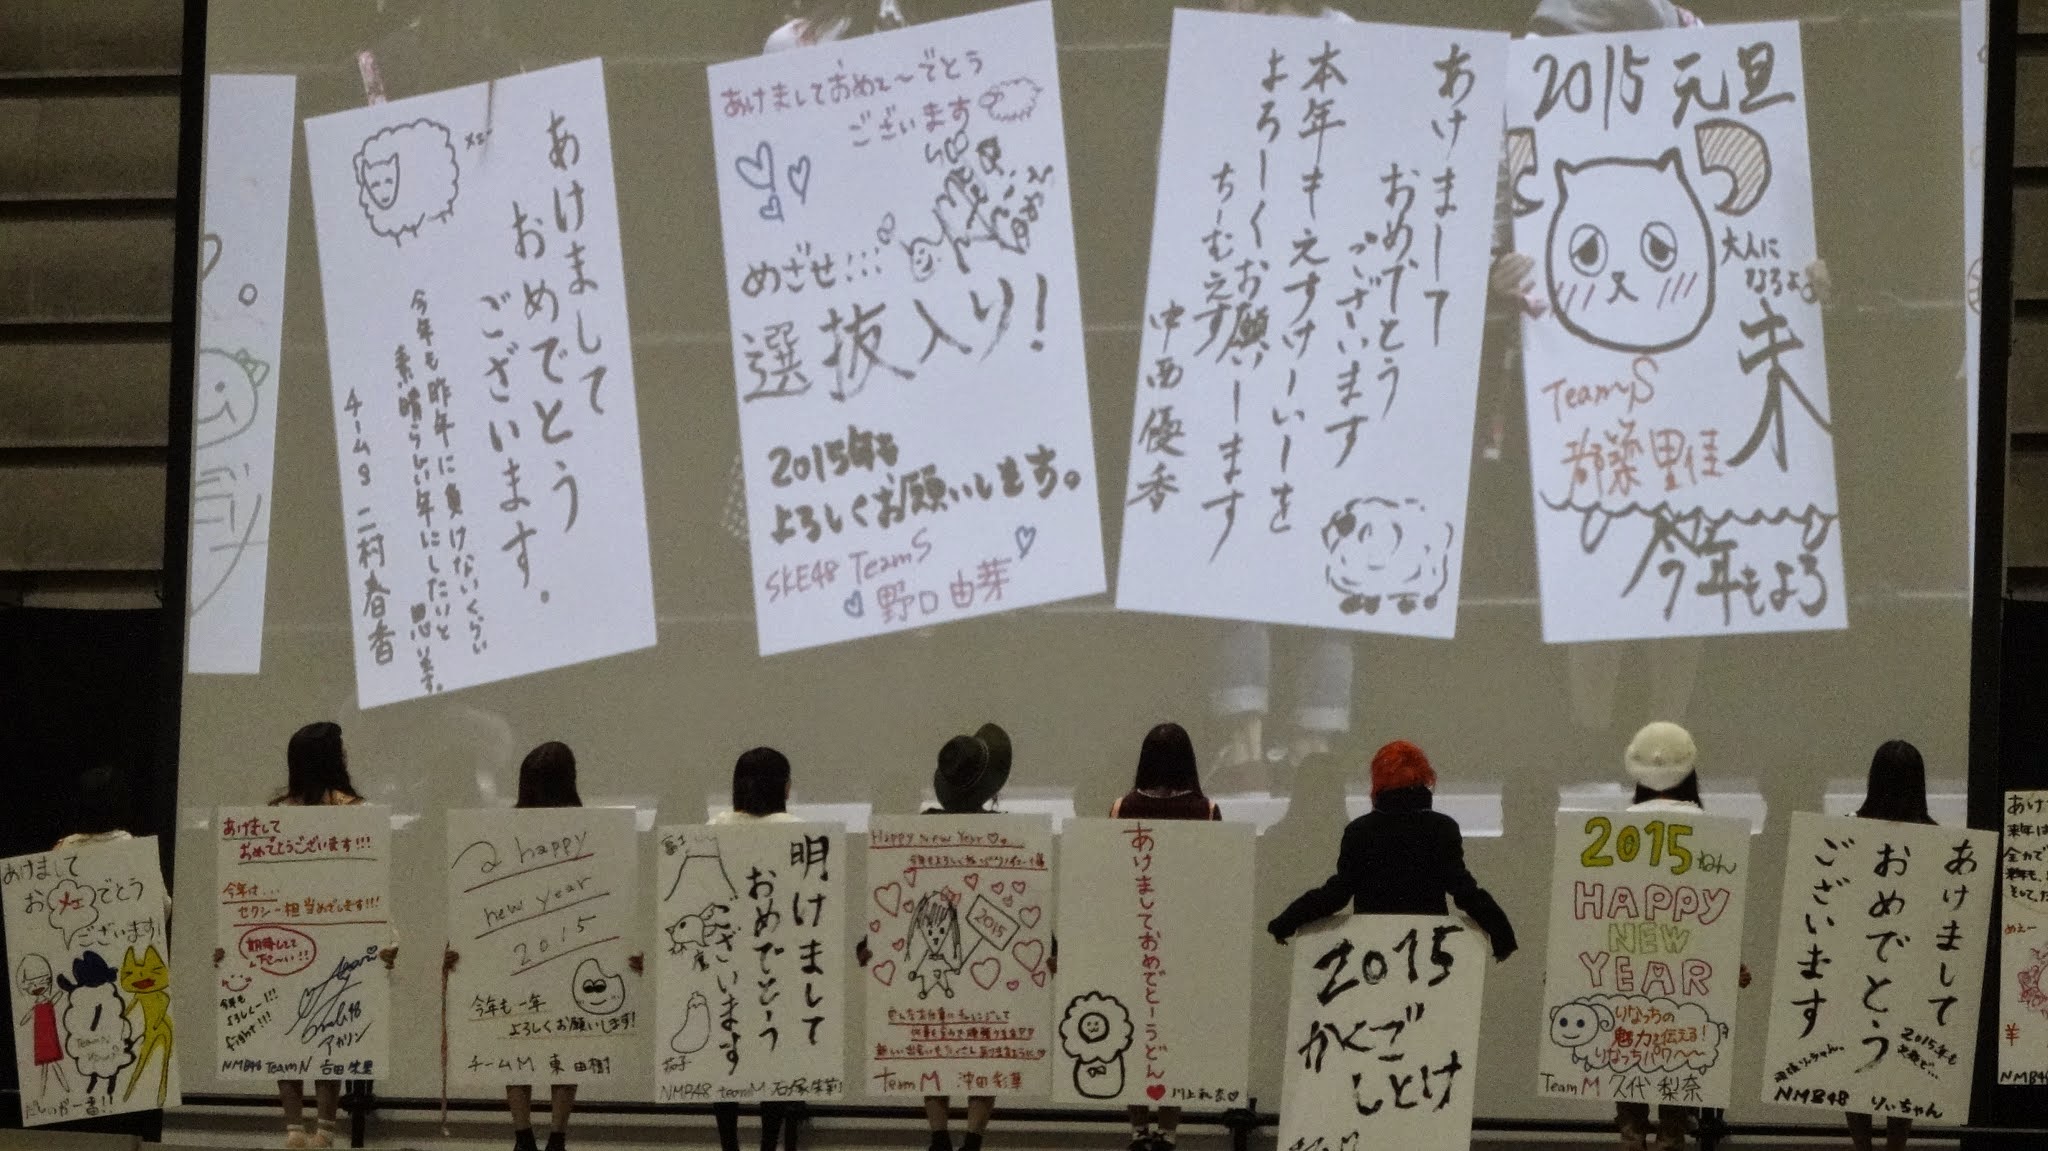 メェ
あけまして
おめでとう
ございます。
今年も昨年に負けないくらい
素晴らしい年にしたいと
思います。
チームS 二村春香
あけましておめぇ〜でとう
ございます
めざせ!!!
選抜入り!
2015年も
よろしくお願いします。
SKE48 TeamS
野口由芽
あけまーして
おめでとう
ございます
本年もえすけーいーを
よろーくお願いーします
ちーむえす
中西優香
2015元旦
大人に
なるよ
未
Team S
都築里佳
今年もよろ
あけまして
おメェでとう
ございます!
TeamN
あけまして
おめでとうございます!!!
今年は...
セクシー担当めざします!!!
期待してて
下さーい!!
今年も
よろしくー!!!
fight!!!
アカリン
NMB48 TeamN 吉田朱里
a happy
new year
2015
今年も一年
よろしくお願いします!
チームM 東由樹
富士
鷹
茄子
明けまして
おめでとう
ございます
NMB48 teamM 石塚朱莉
Happy New Year♡。
2015
TeamM 沖田彩華
あけましておめでとーうどん♥
川上礼奈♡
2015
かくご
しとけ
2015ねん
HAPPY
NEW
YEAR
りなっちの
魅力を伝える!
りなっちパワ〜〜
TeamM 久代梨奈
あけまして
おめでとう
ございます
2015年も
NMB48 りぃちゃん
あけ
来年は
全力で
めぇー
NMB48